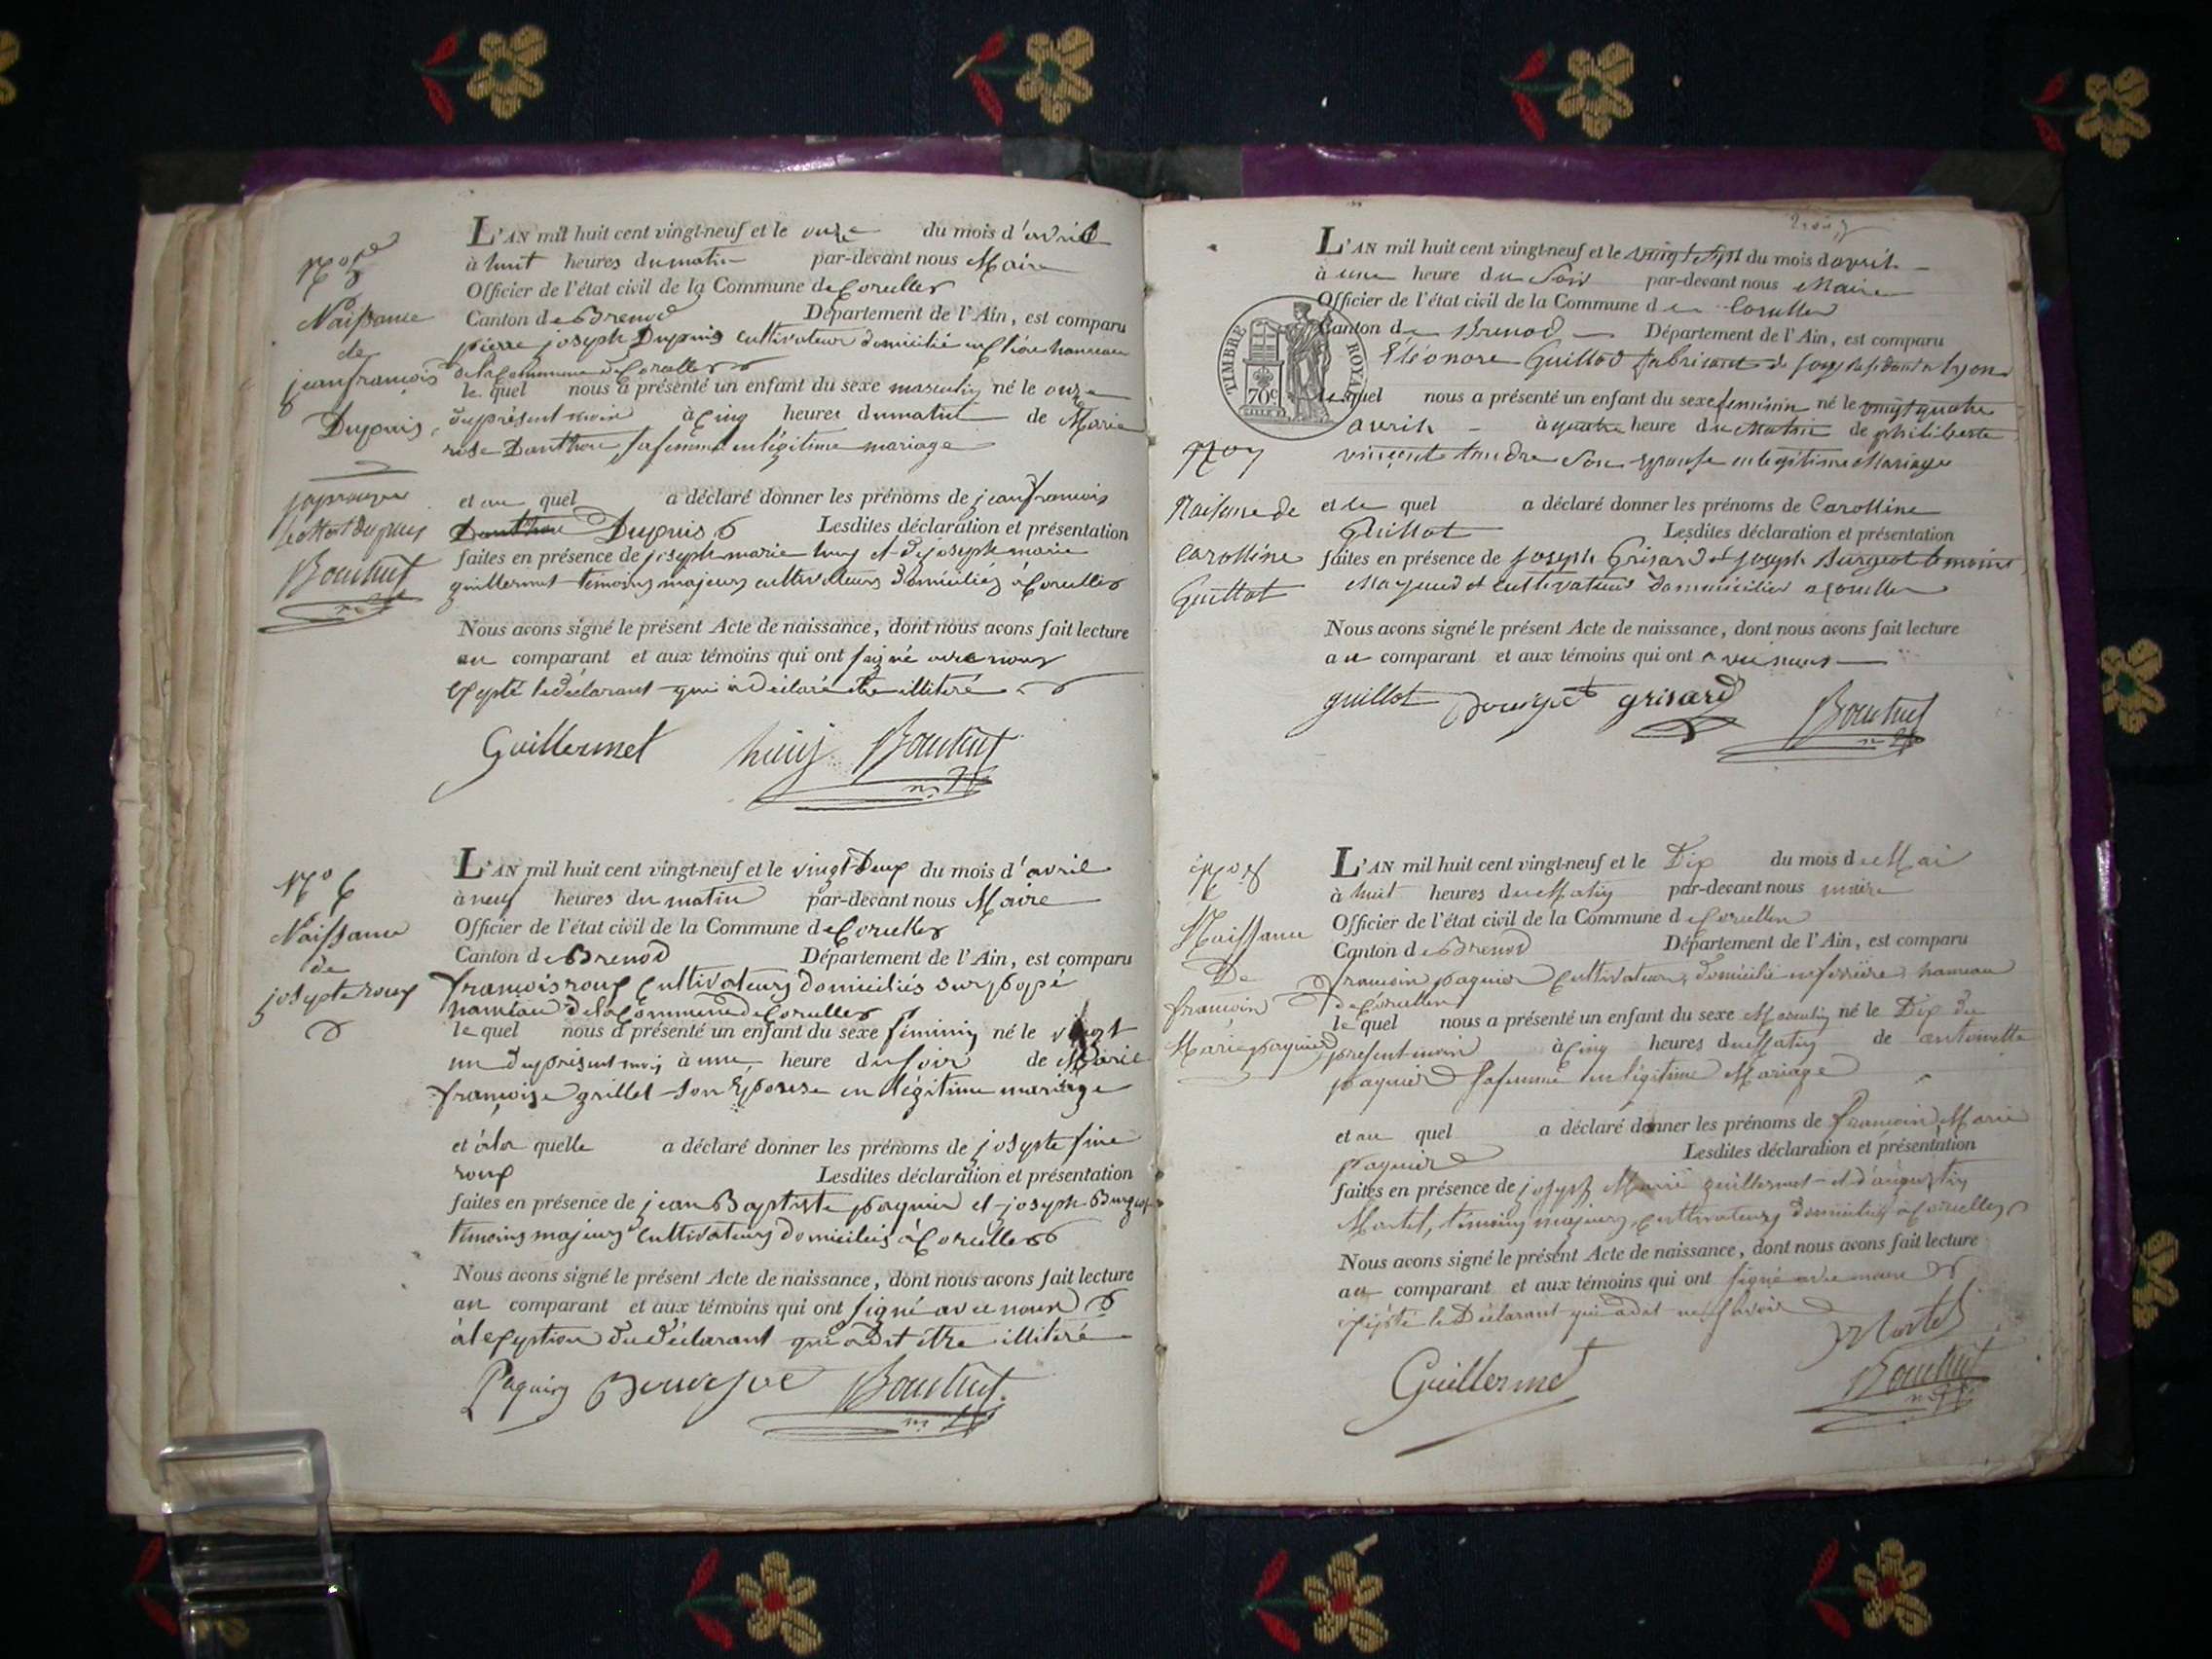 N° 5
Naissance
de
jean françois
Dupuis
japrouve
le mot dupuis
L'AN mil huit cent vingt-neuf et le onze du mois d'avril
à huit heures du matin par-devant nous Maire
Officier de l'état civil de la Commune de Corcelles
Canton de Brenod Département de l'Ain, est comparu
pierre joseph Dupuis cultivateur domicilié en hameau
de la Commune de Corcelles
le quel nous a présenté un enfant du sexe masculin né le onze
du présent mois à Cinq heures du matin de Marie
rose Danthon sa femme en légitime mariage
et au quel a déclaré donner les prénoms de jean francois
Danthon Dupuis Lesdites déclaration et présentation
faites en présence de joseph marie huy et de joseph marie
guillermet témoins majeurs cultivateurs domiciliés à Corcelles
Nous avons signé le présent Acte de naissance, dont nous avons fait lecture
au comparant et aux témoins qui ont signé avec nous
le déclarant qui a déclaré être illitéré
Guillermet huij
N° 6
Naissance
de
josypte roux
L'AN mil huit cent vingt-neuf et le vingt Deux du mois d'avril
à neuf heures du matin par-devant nous Maire
Officier de l'état civil de la Commune de Corcelles
Canton de Brenod Département de l'Ain, est comparu
françois roux Cultivateurs domiciliés sur
hameau de la Commune de Corcelles
le quel nous a présenté un enfant du sexe féminin né le vingt
un du présent mois à une heure du soir de Marie
françoise grillet son Eposese en légitime mariage
et à la quelle a déclaré donner les prénoms de josypte fine
roux Lesdites déclaration et présentation
faites en présence de jean Baptiste paquier et joseph Burgeot
témoins majeurs Cultivateurs domiciliés à Corcelles
Nous avons signé le présent Acte de naissance, dont nous avons fait lecture
au comparant et aux témoins qui ont signé avec nous
à lexception du déclarant qui a dit être illitéré
L'AN mil huit cent vingt-neuf et le vingt sept du mois d avril
à une heure du Soir par-devant nous Maire
Officier de l'état civil de la Commune de Corcelles
TIMBRE ROYAL
70c
Canton de Brenod Département de l'Ain, est comparu
Éléonore Guillot fabricant de a lyon
le quel nous a présenté un enfant du sexe feminin né le vingt quatre
avril à quatre heure du Matin de philiberte
vincent son epouse en legitime Mariage
N° 7
Naissance de
Carolline
Guillot
et le quel a déclaré donner les prénoms de Carolline
Guillot Lesdites déclaration et présentation
faites en présence de joseph Grisard et joseph Burgeot temoins
Majeurs et cultivateurs dommicilier a Corcelles
Nous avons signé le présent Acte de naissance, dont nous avons fait lecture
au comparant et aux témoins qui ont avec nous
guillot grisard
N° 8
Naissance
De
francoin
Marie paquier
L'AN mil huit cent vingt-neuf et le Dix du mois de Mai
à huit heures du Matin par-devant nous maire
Officier de l'état civil de la Commune de Corcelles
Canton de Brenod Département de l'Ain, est comparu
francoin paquier Cultivateur, domicilié en ferrière hameau
de Corcelles
le quel nous a présenté un enfant du sexe Masculin né le Dix du
présent mois à Cinq heures du Matin de antoinette
paquier sa femme en légitime Mariage
et au quel a déclaré donner les prénoms de francoin Marie
paquier Lesdites déclaration et présentation
faites en présence de joseph Marie guillermet et d'augustin
Martel, témoins majeurs, Cultivateurs domiciliés à Corcelles
Nous avons signé le présent Acte de naissance, dont nous avons fait lecture
au comparant et aux témoins qui ont signé avec nous
le Déclarant qui a dit ne savoir
Martel
Guillermet